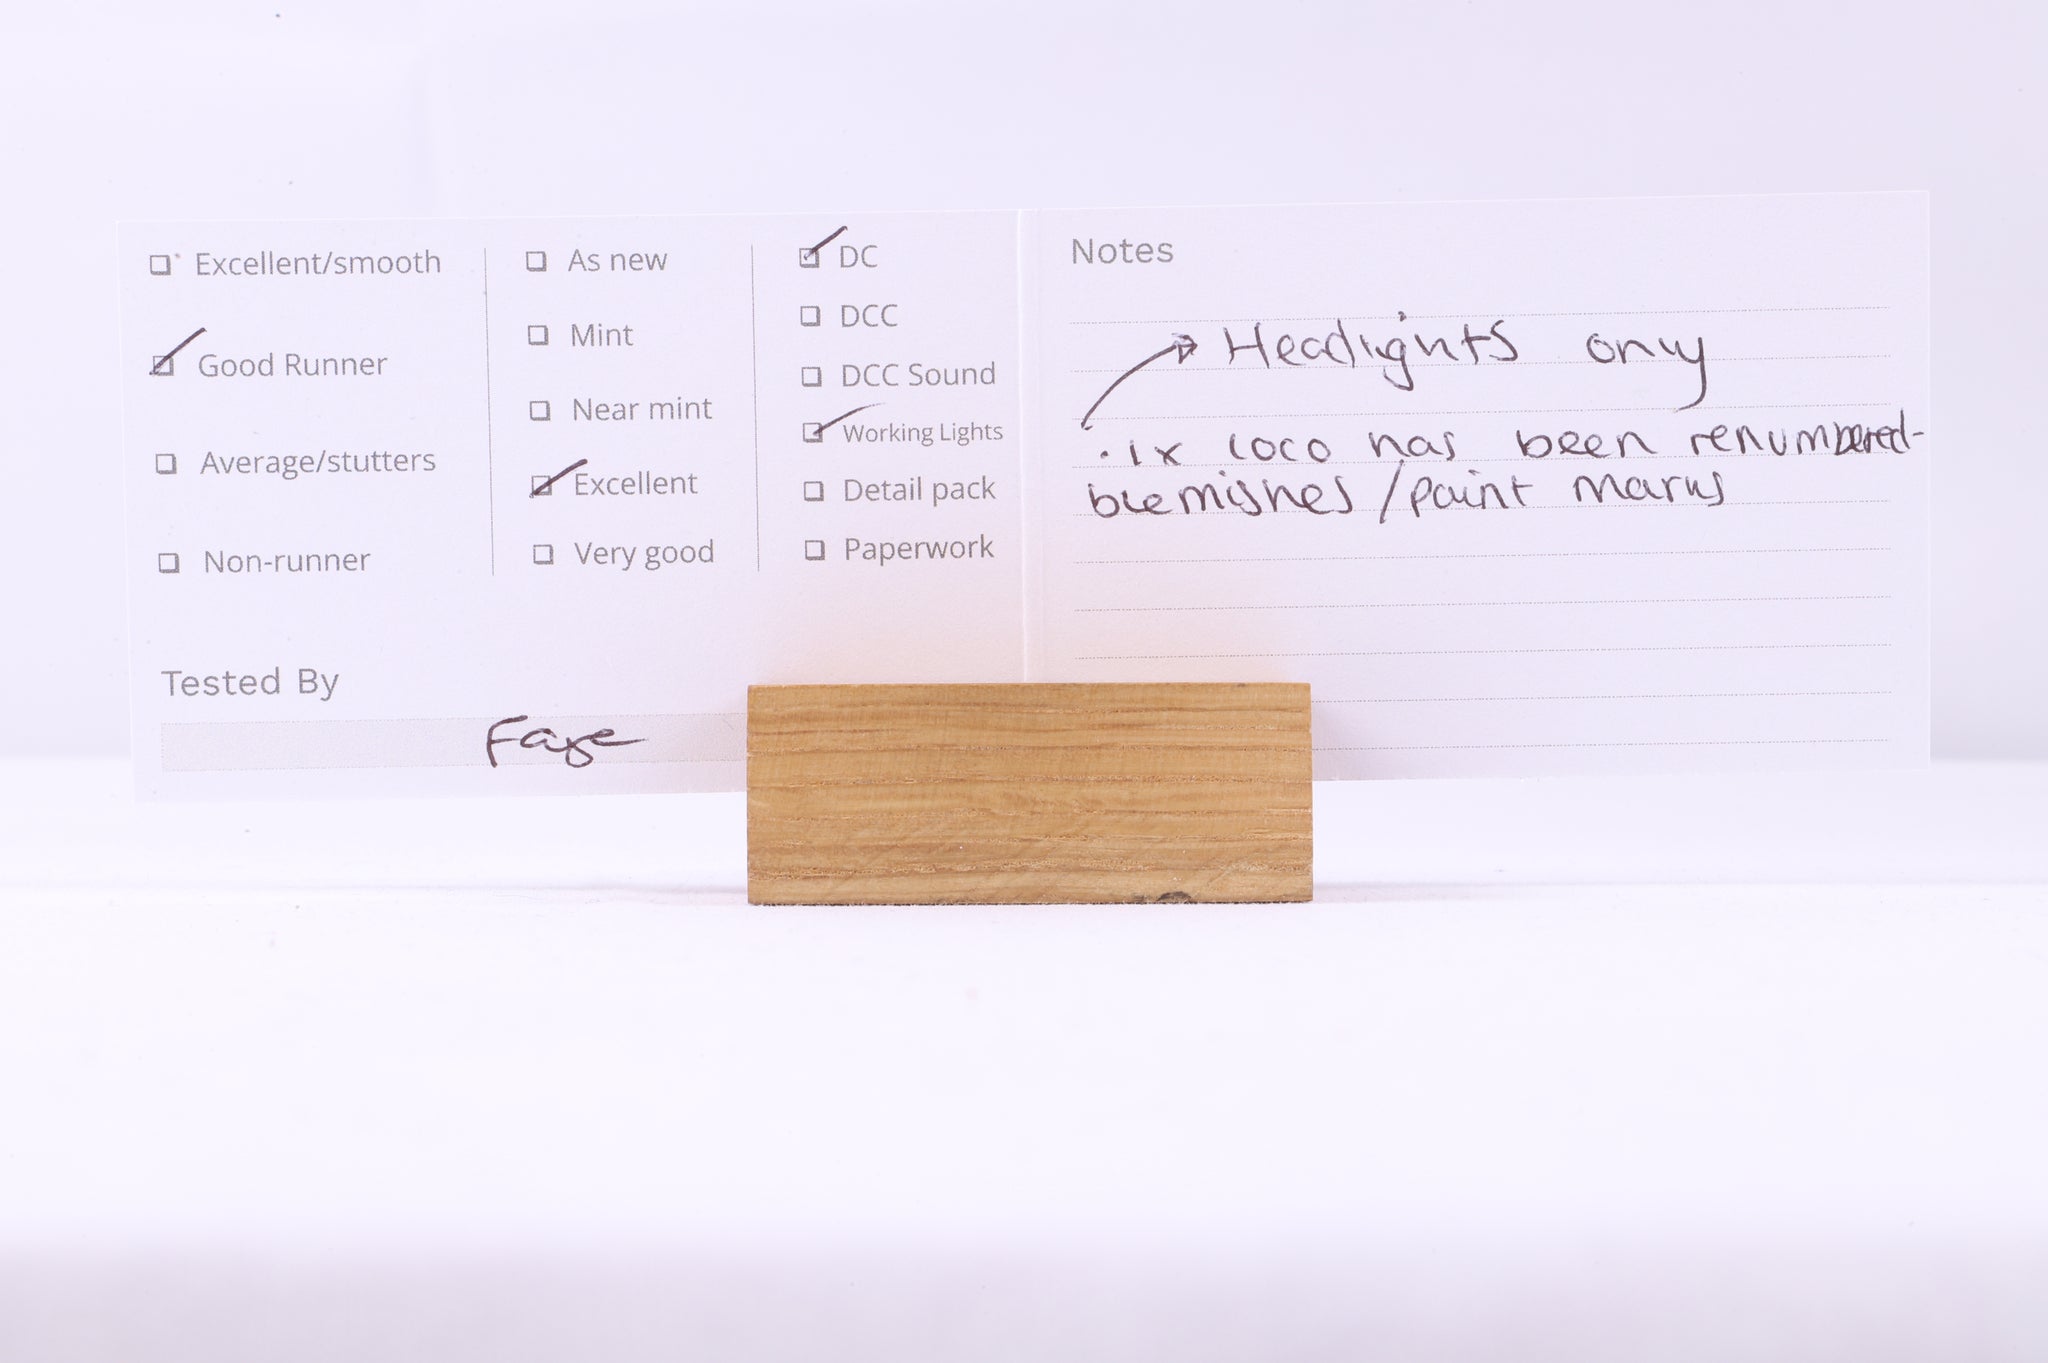 Excellent/smooth
Good Runner
Average/stutters
Non-runner
As new
Mint
Near mint
Excellent
Very good
DC
DCC
DCC Sound
Working Lights
Detail pack
Paperwork
Tested By
Faye
Notes
Headlights only
· 1x loco has been renumbered -
blemishes / paint marks